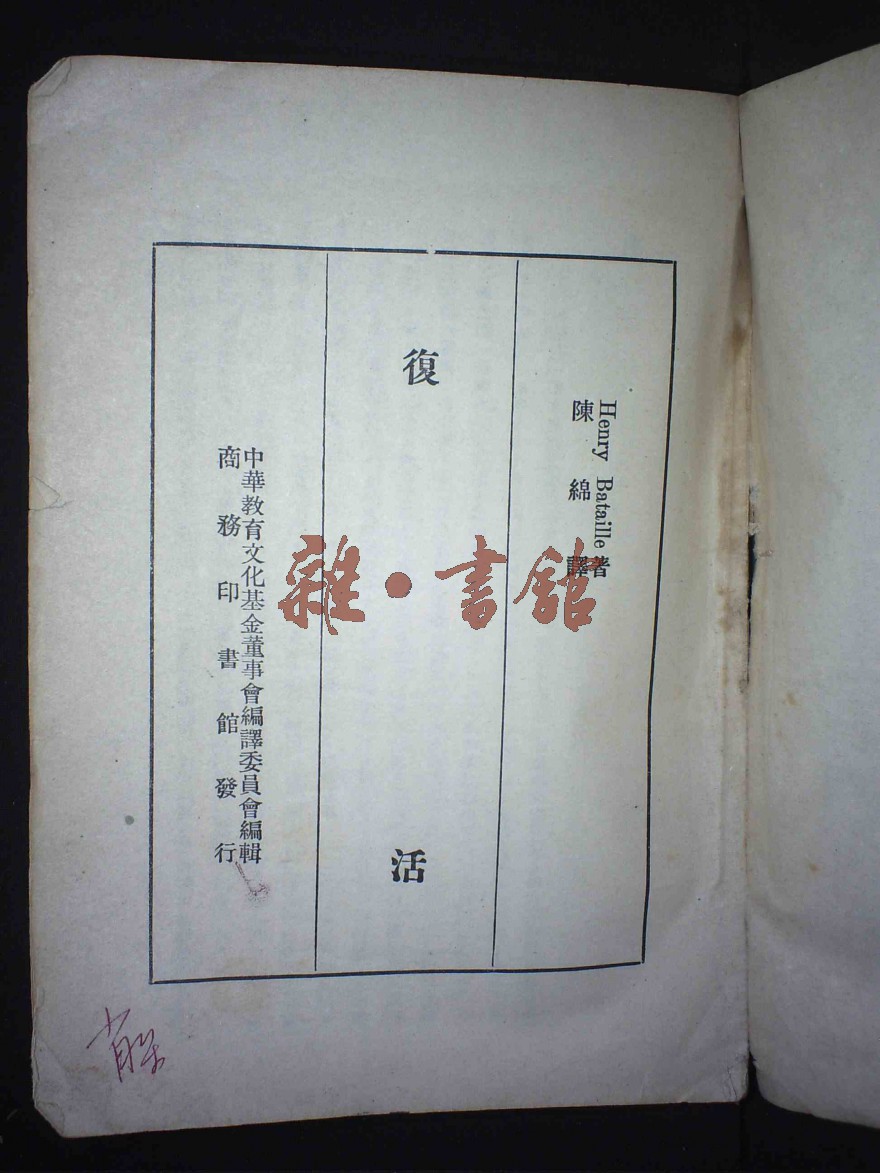 Henry Bataille 著
陳綿譯
復活
中華教育文化基金董事會編譯委員會編輯
商務印書館發行
雜·書館